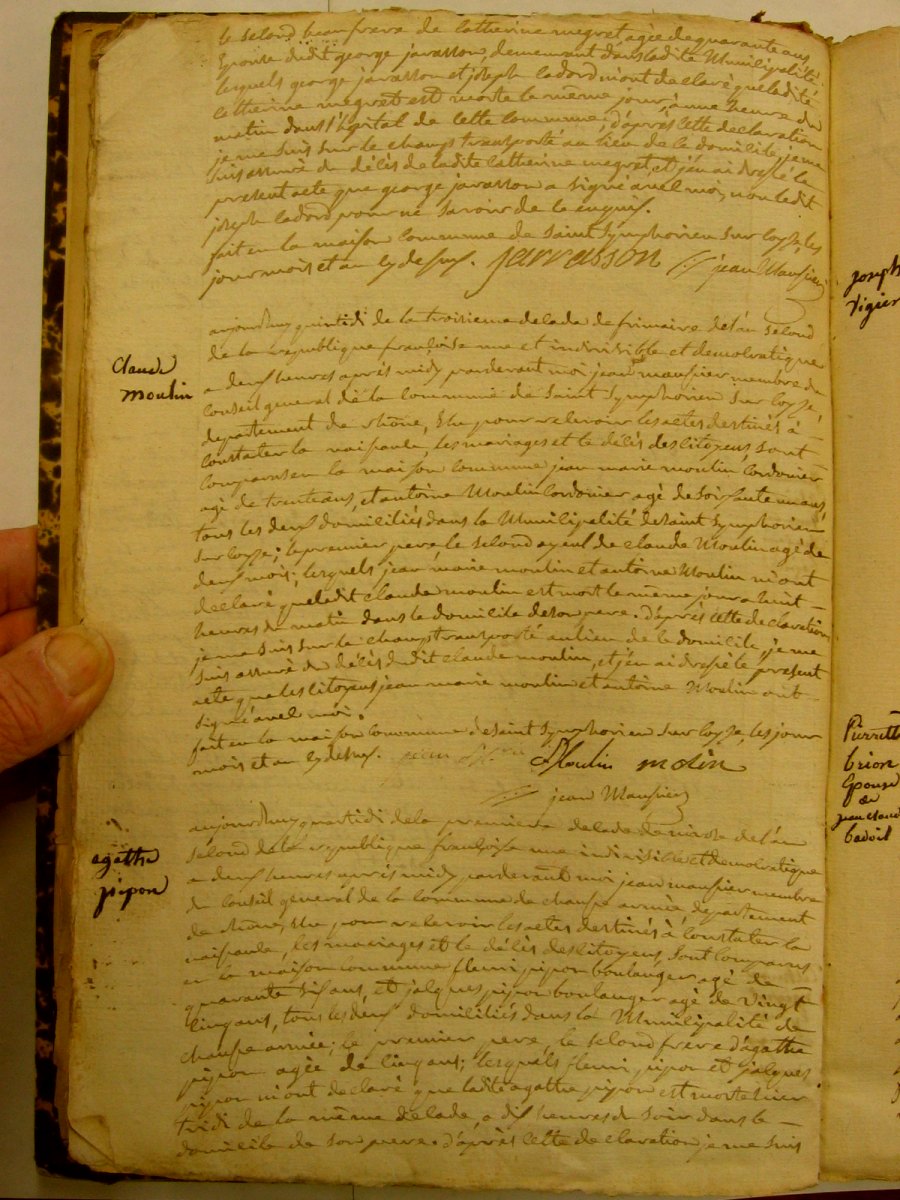 le second beaufrere de Catherine megret agée de quarante ans
Epouse dudit george javasson, demeurant dans ladite Municipalité
lesquels george javasson et joseph cadord m'ont declaré que ladite
Catherine megret est morte le même jour, à une heure du
matin dans l'hôpital de cette commune; d'après cette declaration
je me suis sur le champ transporté au lieu de le domicile, je me
suis assuré du décès de ladite Catherine megret, et j'en ai dressé le
present acte que george javasson a signé avec moi, non ledit
joseph cadord pour ne savoir de ce enquis.
fait en la maison commune de Saint Symphorien sur Coise, les
jour mois et an cy dessus. jarvasson jean Mausier
Claude
moulin
aujourdhuy quintidi de la troisieme decade de frimaire de l'an second
de la republique françoise une et indivisible et democratique
a deux heures après midy pardevant moi jean mausier membre du
Conseil general de la commune de Saint Symphorien sur Coise,
departement de rhône, Elu pour relevoir les actes destinés à
constater la naissance, les mariages et le décès des citoyens, sont
comparus en la maison commune jean marie moulin cordonier
agé de trente ans, et antoine Moulin cordonier agé de soissante un ans,
tous les deux domiciliés dans la Municipalité de Saint Symphorien
sur Coise; le premier pere le second ayeul de claude Moulin agé de
deux mois; lesquels jean marie moulin et antoine Moulin m'ont
declaré que ledit claude moulin est mort le même jour a huit
heures du matin dans le domicile de son pere. D'après cette declaration
je me suis sur le champ transporté au lieu de le domicile, je me
suis assuré du décès dudit claude moulin, et j'en ai dressé le present
acte que les citoyens jean marie moulin et antoine Moulin ont
signé avec moi.
fait en la maison commune de Saint Symphorien sur Coise, les jour
mois et an cy dessus. Moulin molin
jean Mausier
agathe
pipon
aujourdhuy quartidi de la premiere decade de nivose de l'an
second de la republique françoise une indivisible et democratique
a deux heures après midy pardevant moi jean mausier membre
du Conseil general de la commune de chausse armée departement
de rhône, Elu pour relevoir les actes destinés à constater la
naissance, les mariages et le décès des citoyens, sont comparus
en la maison commune fleuri pipon boulanger agé de
quarante six ans, et jacques pipon boulanger agé de vingt
cinq ans, tous les deux domiciliés dans la Municipalité de
chausse armée; le premier pere, le second frere d'agathe
pipon agée de cinq ans; lesquels fleuri pipon et jacques
pipon m'ont declaré que ladite agathe pipon est morte hier
tridi de la même decade, a dix heures du soir dans le
domicile de son pere. d'après cette declaration je me suis
joseph
Vigier
Pierrette
brion
Epouse
de
jean claude
badoil